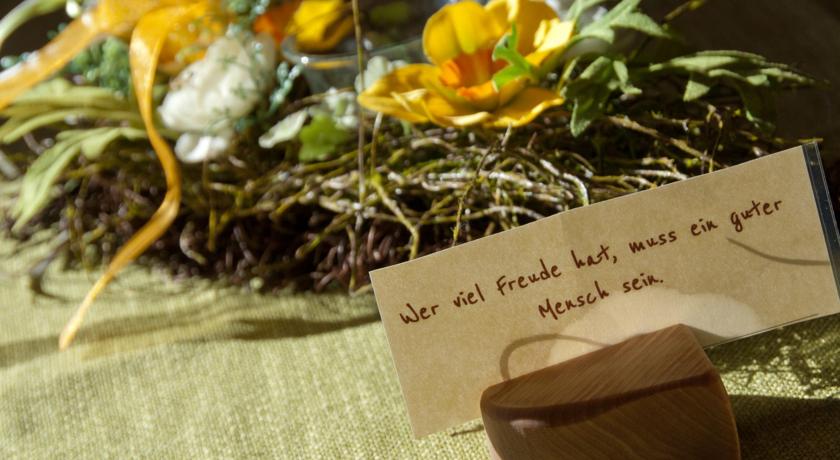 Wer viel Freude hat, muss ein guter
Mensch sein.